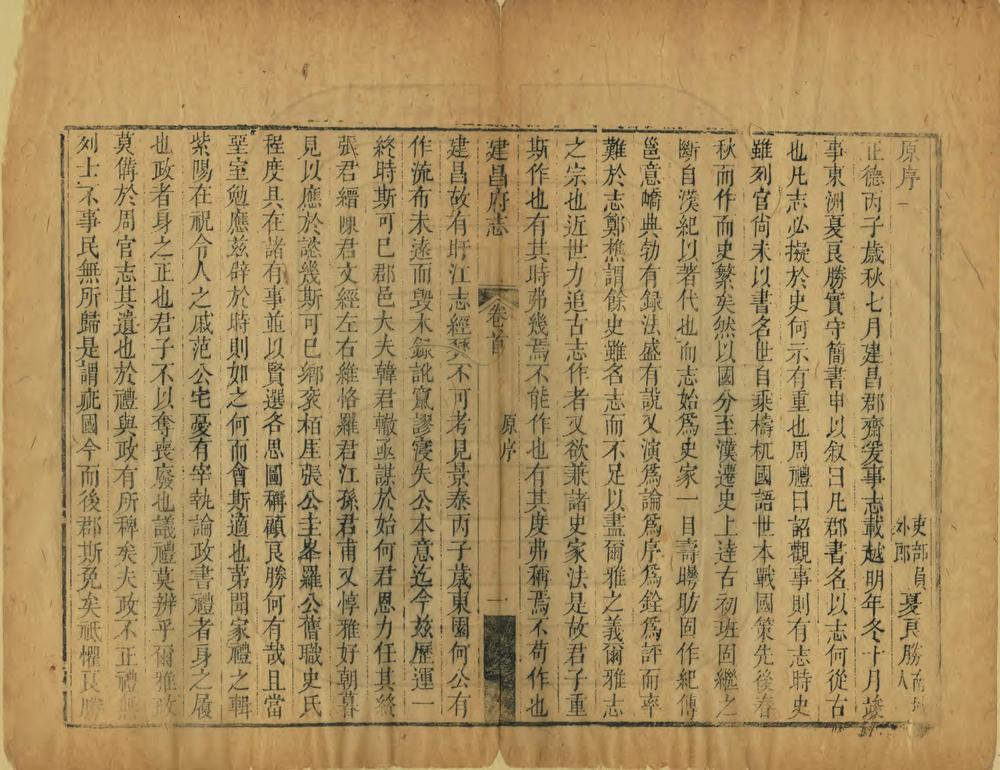 原序
吏部員外郎夏良勝南城人
正德丙子歲秋七月建昌郡齋爰事志載越明年冬十月竣
事東洲夏良勝實守簡書申以叙曰凡郡書名以志何從古
也凡志必擬於史何示有重也周禮曰詔觀事則有志時史
雖列官尚未以書名世自乘檮杌國語世本戰國策先後春
秋而作而史繁矣然以國分至漢遷史上達古初班固繼之
斷自漢紀以著代也而志始爲史家一目壽曄昉固作紀傳
邕意嶠典勃有録法盛有說又演爲論爲序爲銓爲評而率
難於志鄭樵謂餘史雖名志而不足以盡爾雅之義爾雅志
之宗也近世力追古志作者又欲兼諸史家法是故君子重
斯作也有其時弗幾焉不能作也有其度弗稱焉不苟作也
建昌府志 卷首 原序 一
建昌故有旴江志經燹不可考見景泰丙子歲東園何公有
作流布未遠而毀木録訛竄謬寖失公本意迄今兹歷運一
終時斯可已郡邑大夫韓君轍亟謀於始何君恩力任其終
張君縉陳君文經左右維恪羅君江孫君甫又惇雅好朝暮
見以應於諗幾斯可已鄉衮栢厓張公圭峯羅公舊職史氏
程度具在諸有事並以賢選各思圖稱顧良勝何有哉且當
堊室勉應兹辟於時則如之何而會斯適也苐聞家禮之輯
紫陽在祝令人之戚范公宅憂有宰執論政書禮者身之履
也政者身之正也君子不以奪喪廢也議禮莫辨乎爾雅政
莫備於周官志其遺也於禮與政有所稗矣夫政不正禮無
列士不事民無所歸是謂疵國今而後郡斯免矣祗懼良勝